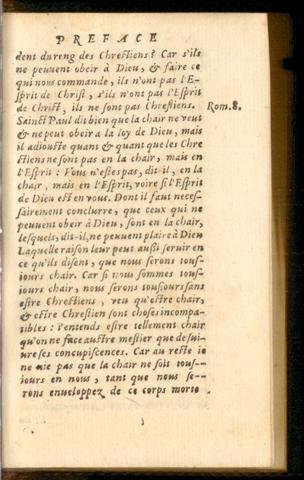 PREFACE
dent du reng des Chrestiens? Car s'ils
ne peuuent obeir à Dieu, & faire ce
qui nous commande, ils n'ont pas l'E-
sprit de Christ, s'ils n'ont pas l'Esprit
de Christ, ils ne sont pas Chrestiens.
Rom.8.
Sainct Paul dit bien que la chair ne veut
& ne peut obeir a la loy de Dieu, mais
il adiouste quant & quant que les Chre
stiens ne sont pas en la chair, mais en
l'Esprit: Vous n'estes pas, dit il, en la
chair, mais en l'Esprit, voire si l'Esprit
de Dieu est en vous. Dont il faut neces-
sairement conclurre, que ceux qui ne
peuuent obeir à Dieu, sont en la chair,
lesquels, dit-il, ne peuuent plaire à Dieu
Laquelle raison leur peut aussi seruir en
ce qu'ils disent, que nous serons tous-
iours chair. Car si nous sommes tous-
iours chair, nous serons tousiours sans
estre Chrestiens, veu qu'estre chair,
& estre Chrestien sont choses incompa-
tibles: i'entends estre tellement chair
qu'on ne face austre mestier que de sui-
ure ses concupiscences. Car au reste ie
ne nie pas que la chair ne soit tous-
iours en nous, tant que nous se-
rons enueloppez de ce corps morte